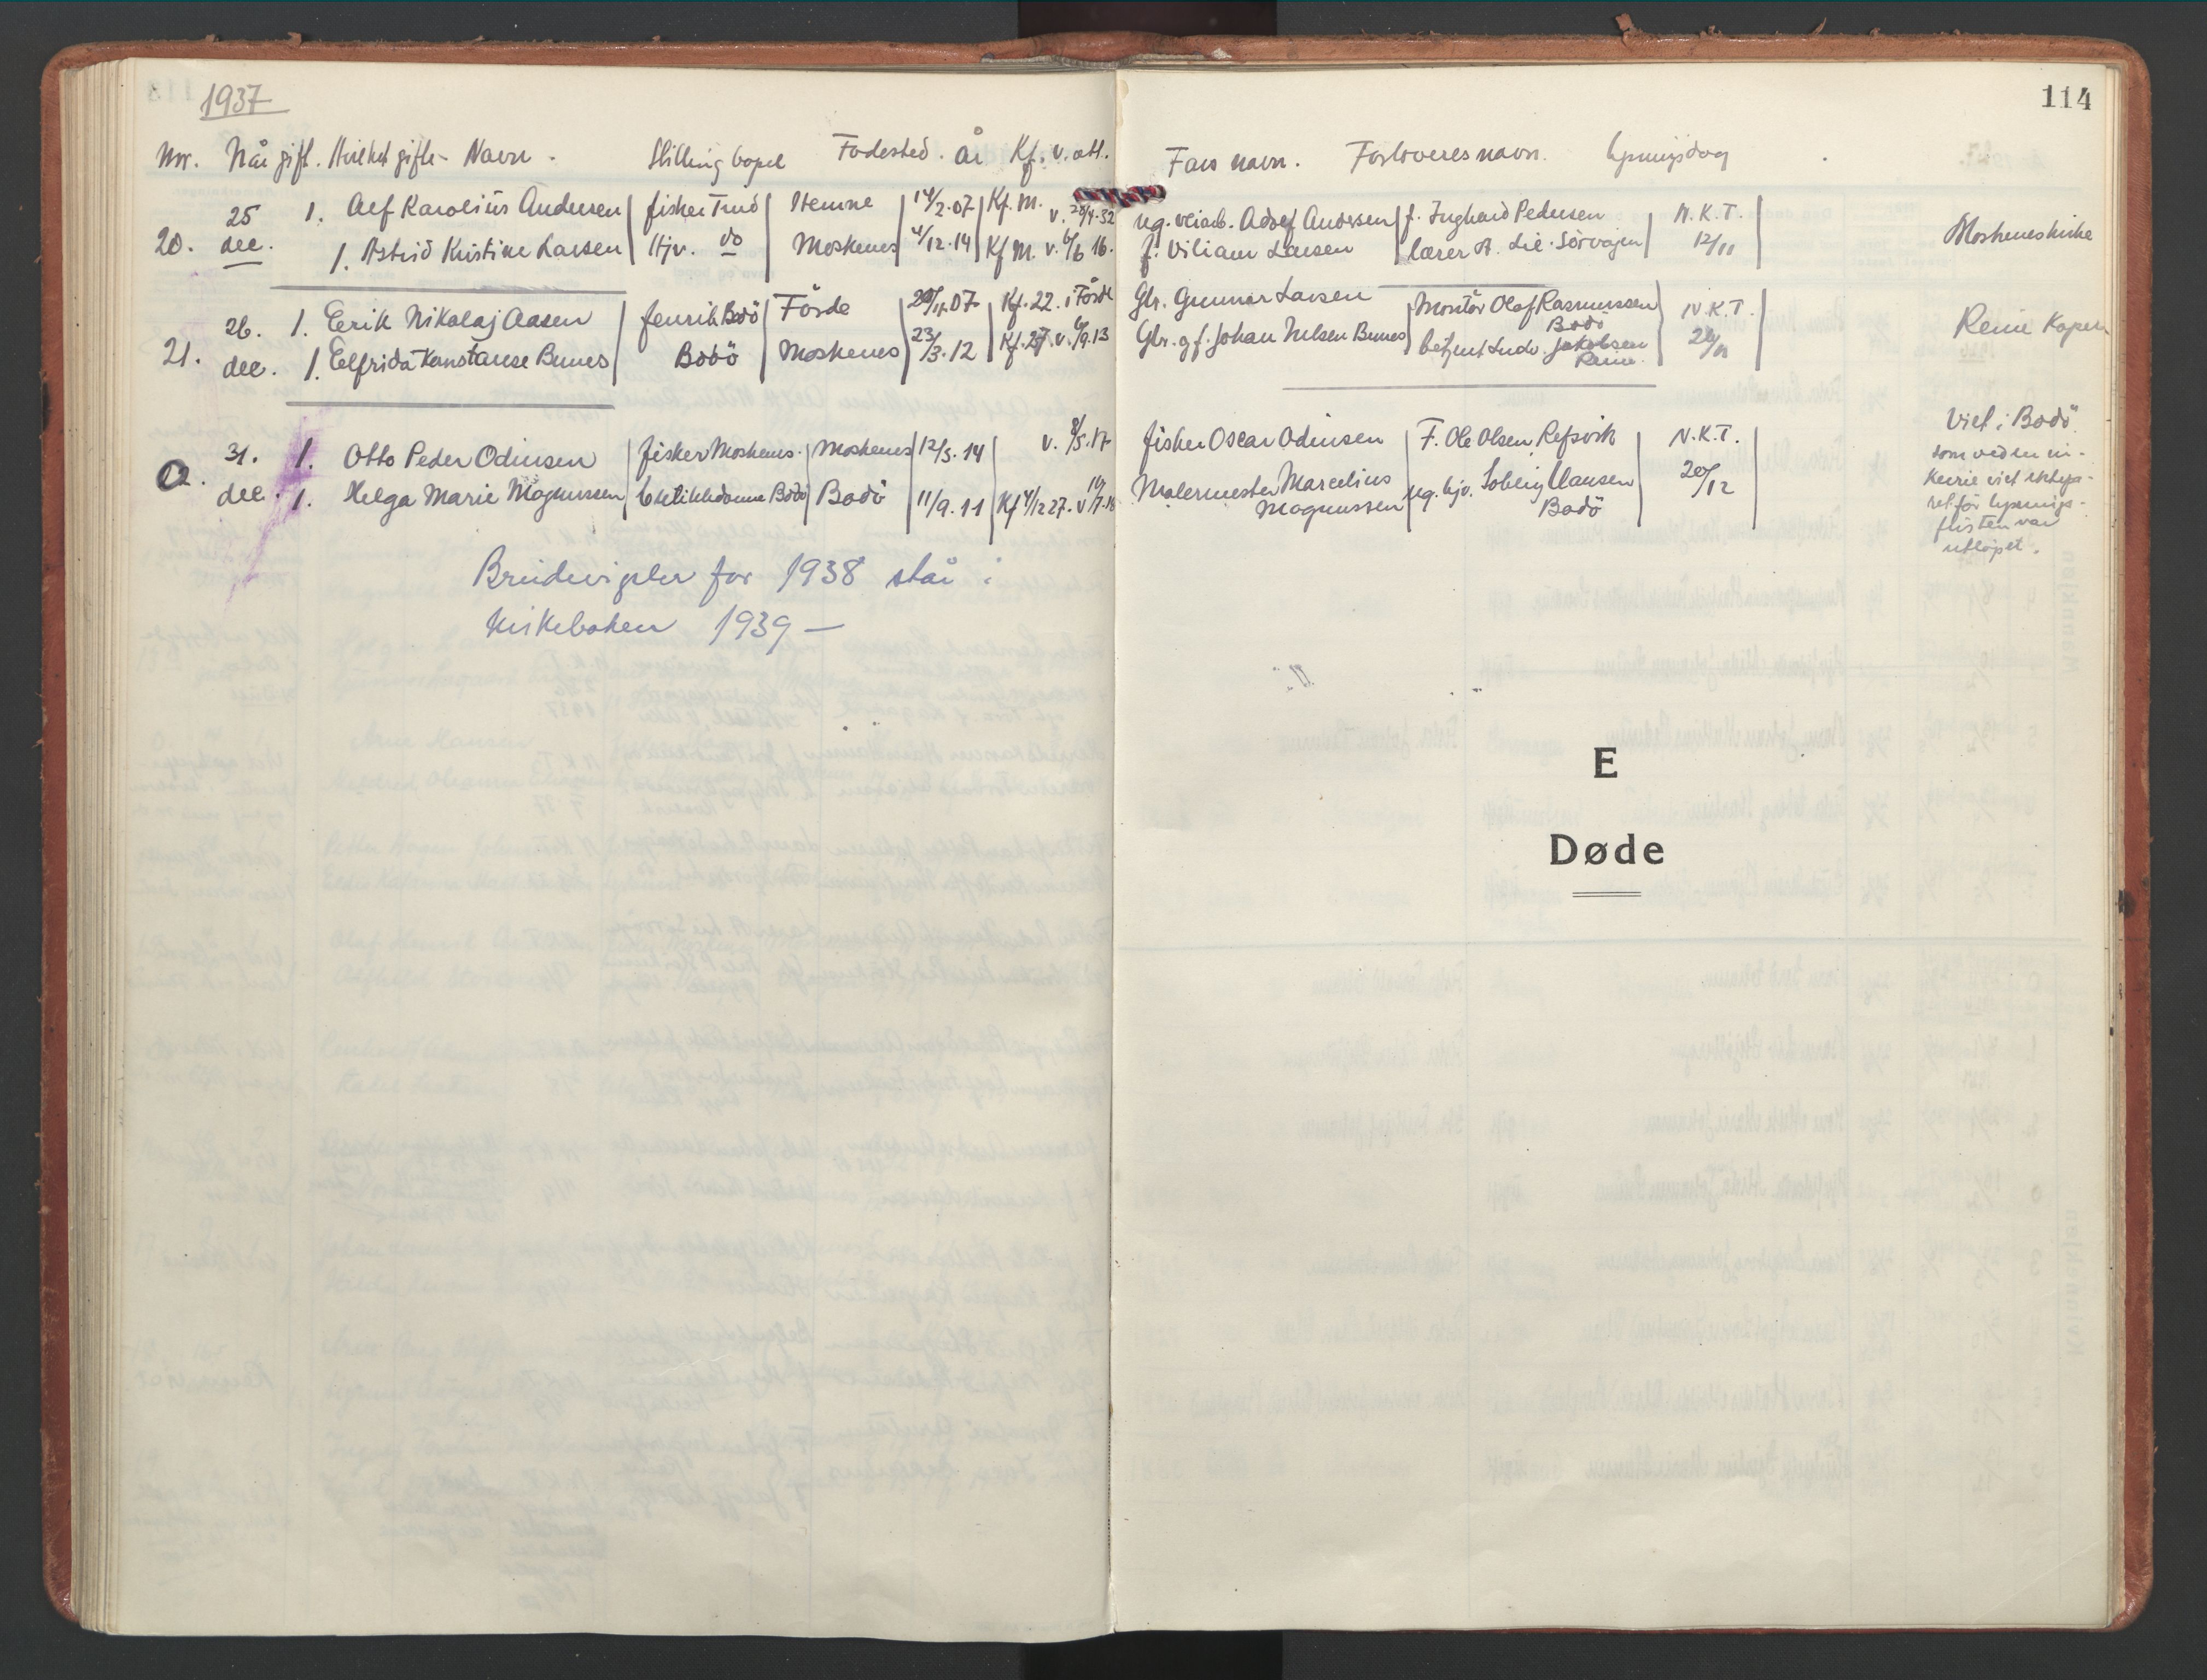 1937
Nr. Når gift. Hvilket gifte - Navn. Stilling bopel Födested. År Kf. v. att.
25 1. Alf Karolius Andersen fisker Tind Hemne 14/2.07 Kf. M. v. 20/4.32
20. dec. 1. Astrid Kristine Larsen Hjv. do Moskenes 4/12.14 Kf M. v. 6/6 16.
26. 1. Erik Nikolaj Aasen Bodö Förde 07 Kf. 22. i Förde
21. dec. 1. Elfrida Konstanse Bunes Bodö Moskenes 23/3.12 Kf. 27. v. 6/9.13
31. 1. Otto Peder Odinsen fisker Moskenes. Moskenes 12/3.14 v. 8/5.17
dec. 1. Helga Marie Magnussen Butikkdame Bodö Bodö 11/9.11 Kf 4/12 27.
Brudevigsler for 1938 står i
Kirkeboken 1939 —
114
Fars navn. Forloveres navn. lysningsdag
ug. veiarb. Adolf Andersen f. Inghard Pedersen N.K.T. Moskenes kirke
f. Viliam Larsen lærer A. Lie. Sörvågen 12/11
Gbr. Gunnar Larsen Montör Olaf Rasmussen N.K.T. Reine Kapell
Bodö
Gbr. g f. Johan Nilsen Bunes betjent Ludv. Jakobsen
Reine.
fisker Oscar Odinsen F. Ole Olsen Refsvik N.K.T.
Malermester Marcelius ug. hjv. Solveig Clausen 20/12
Magnussen Bodö
Viet i Bodö
som ved en in-
kurie viet
ret för lysnings-
fristen var
utlöpet.
E
Døde